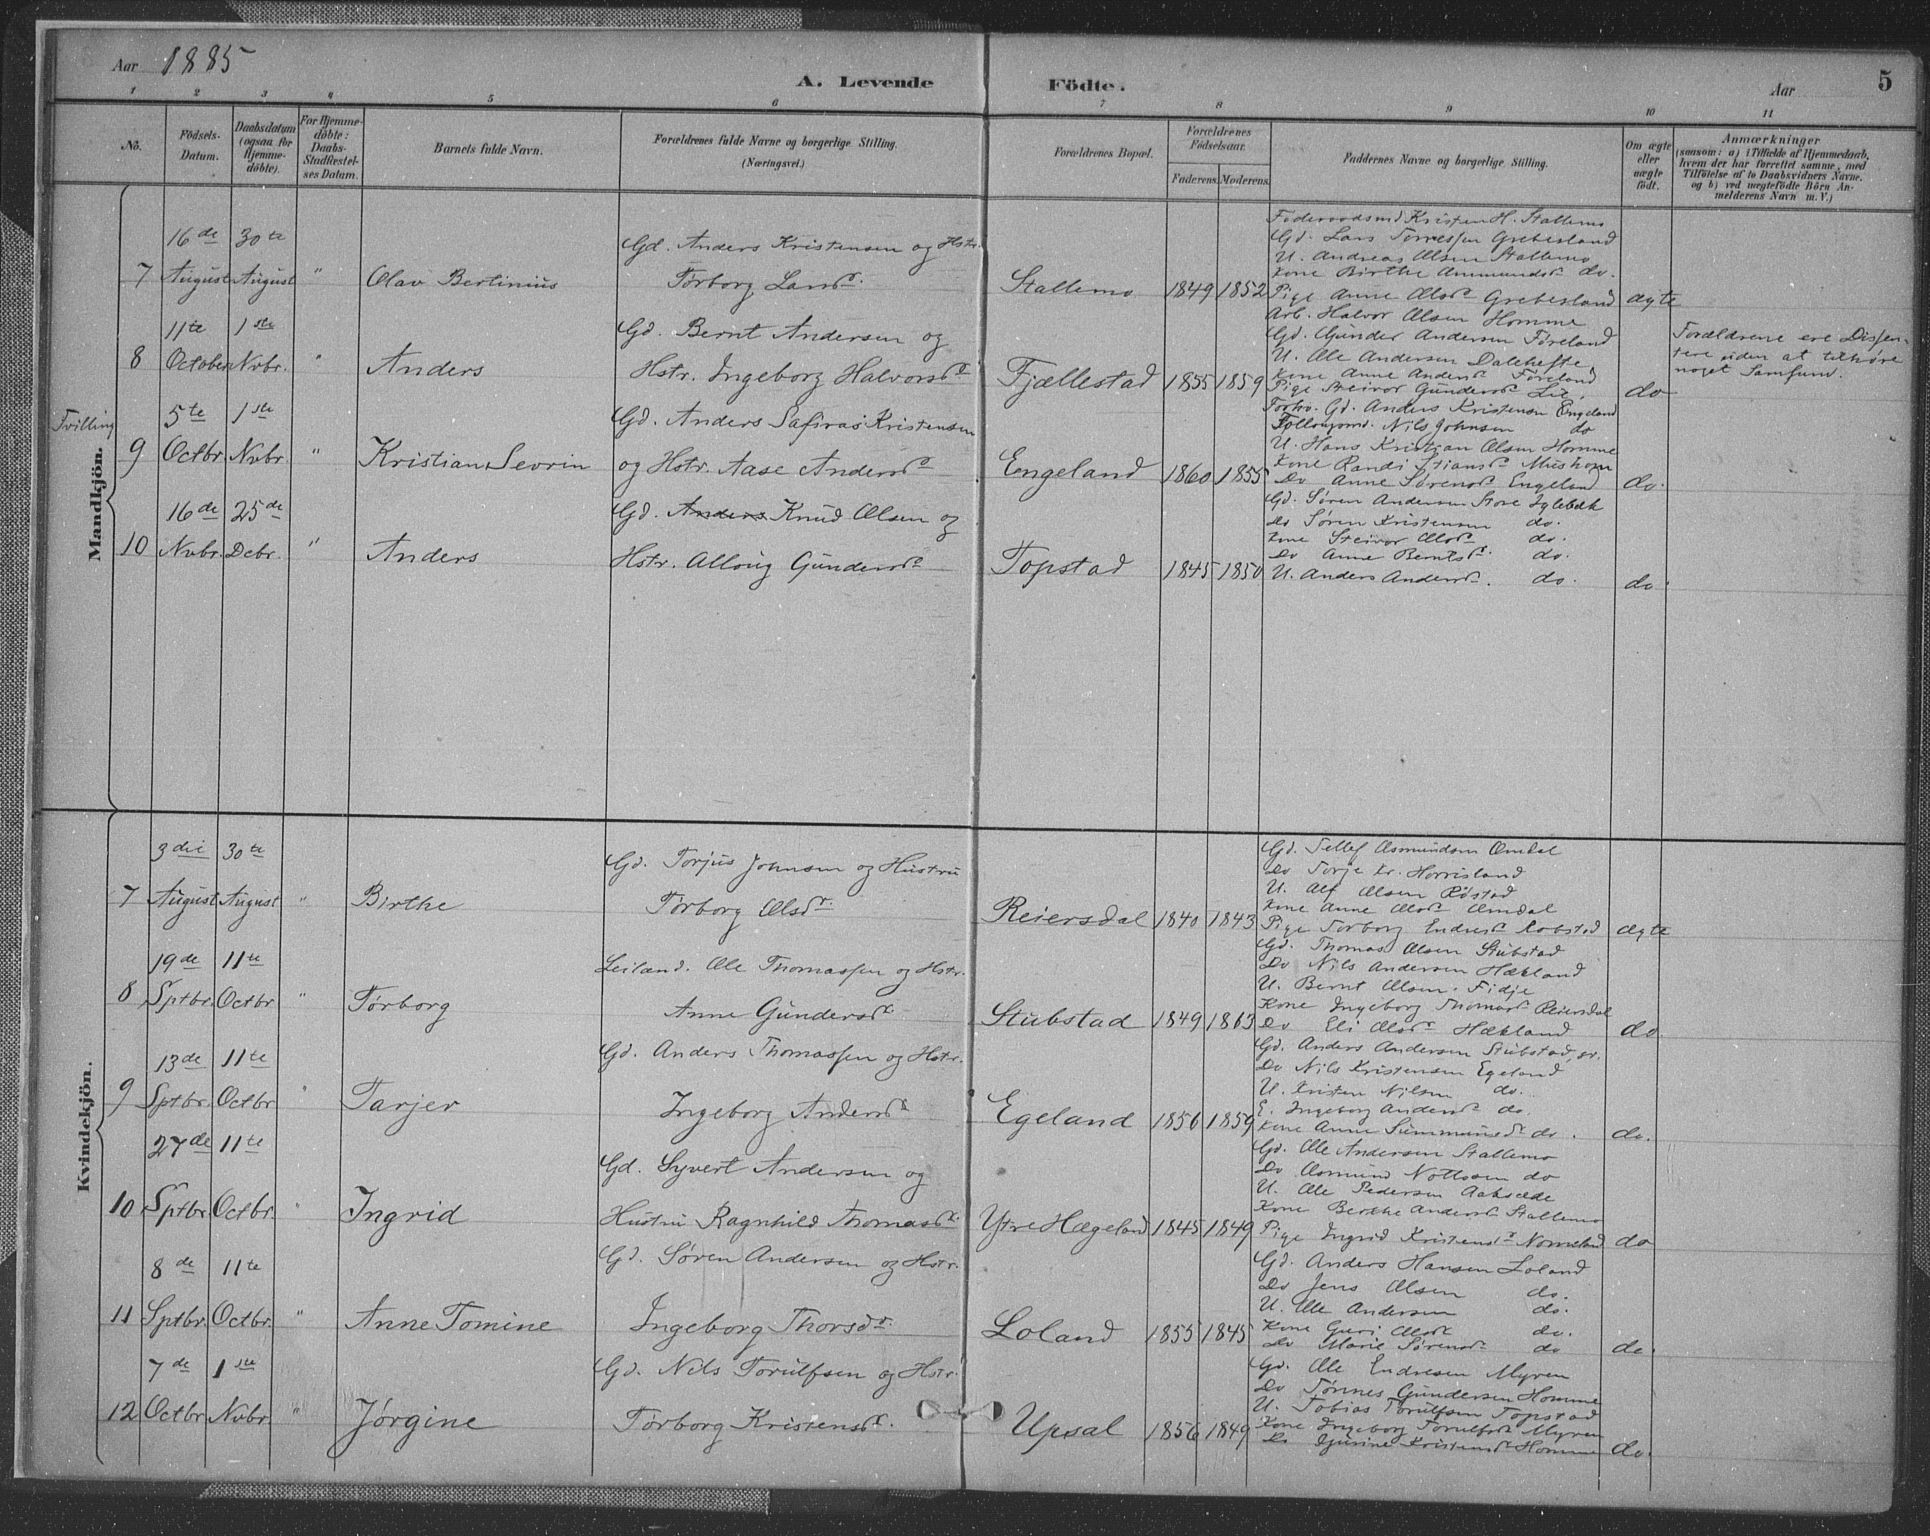 Aar 1885
A. Levende Födte.
Aar
5
1 2 3 4 5 6 7 8 9 10 11
No.
Födsels-Datum.
Daabsdatum (ogsaa for Hjemme-döbte).
For Hjemme-döbte: Daabs-Stadfæstel-ses Datum.
Barnets fulde Navn.
Forældrenes fulde Navne og borgerlige Stilling. (Næringsvei.)
Forældrenes Bopæl.
Forældrenes Födselsaar.
Faderens. Moderens.
Faddernes Navne og borgerlige Stilling.
Om ægte eller uægte födt.
Anmærkninger
(saasom: a) i Tilfælde af Hjemmedaab, hvem der har forrettet samme, med Tilföielse af to Daabsvidners Navne. og b) ved uægtefödte Börn An-melderens Navn m. V.)
Mandkjön.
7
16de August
30te August
"
Olav Bertinius
Gd. Anders Kristensen og Hstr.
Torborg Larsd.
Stallemo
1849 1852
Føderaadsmd Kristen H. Stallemo
Gd. Lars Tørresen Grebesland
U. Andreas Olsen Stallemo
Kone Birthe Ammundsd. do.
Pige Anne Olsd. Grebesland
ægte
8
11te October
1ste Nvbr.
"
Anders
Gd. Bernt Andersen og
Hstr. Ingeborg Halvorsd.
Fjællestad
1855 1859
Arb. Halvor Olsen Homme
Gd. Gunder Andersen Føreland
U. Ole Andersen Dalehefte
Kone Anne Andersd. Føreland
Pige Steivor Gundersd. Lie
do
Forældrene ere Dissen-
tere uden at tilhøre
noget Samfund.
Tvilling
9
5te Octbr.
1ste Nvbr.
"
Kristian Sevrin
Gd. Anders Safiras Kristensen
og Hstr. Aase Andersd.
Engeland
1860 1855
Forhv. Gd. Anders Kristensen Engeland
Nils Johnsen do
U. Hans Kristian Olsen Homme
Kone Randi Stiansd.
Do Anne Sørensd. Engeland
do.
10
16de Nvbr.
25de Debr.
"
Anders
Gd. Anders Knud Olsen og
Hstr. Alloug Gundersd.
Topstad
1845 1850
Gd. Søren Andersen Store Iglebæk
Do Søren Kristensen do.
Kone Steivor Olsd. do.
Do Anne Berntsd. do.
U. Anders Andersd. do.
do
Kvindekjön.
7
3die August
30te August
"
Birthe
Gd. Torjus Johnsen og Hustru
Torborg Olsd.
Reiersdal
1840 1843
Gd. Tellef Asmundsen Omdal
Do Torje Kr. Horrisland
U. Alf Olsen Røstad
Kone Anne Olsd. Omdal
Pige Torborg Endresd. Robstad
ægte
8
19de Sptbr.
11te Octbr
"
Torborg
Leiland. Ole Thomassen og Hstr.
Anne Gundersd.
Stubstad
1849 1863
Gd. Thomas Olsen Stubstad
Do Nils Andersen Hækland
U. Bernt Olsen Fidje
Kone Ingeborg Thomasd. Reiersdal
Do Eli Olsd. Hækland
do
9
13de Sptbr.
11te Octbr
"
Tarjer
Gd. Anders Thomassen og Hstr.
Ingeborg Andersd.
Egeland
1856 1859
Gd. Anders Andersen Stubstad,
Do Nils Kristensen Egeland
U. Kristen Nilsen do.
E. Ingeborg Andersd. do.
Kone Anne do.
do.
10
27de Sptbr.
11te Octbr.
"
Ingrid
Gd. Syvert Andersen og
Hustru Ragnhild Thomasd.
Ytre Hægeland
1845 1849
Gd. Ole Andersen Stallemo
Do Osmund Nottosen do
U. Ole Pedersen
Kone Berthe Andersd. Stallemo
Pige Ingrid Kristensd.
do
11
8de Sptbr.
11te Octbr.
"
Anne Tomine
Gd. Søren Andersen og Hstr.
Ingeborg Thorsd.
Loland
1855 1845
Gd. Anders Hansen Loland
Do Jens Olsen do.
U. Ole Andersen do.
Kone Guri Olsd. do.
Do Marie Sørensd. do
do.
12
7de Octbr
1ste Nvbr.
"
Jørgine
Gd. Nils Torulfsen og Hstr.
Torborg Kristensd.
Upsal
1856 1849
Gd. Ole Endresen Myren
Do Tønnes Gundersen Homme
U. Tobias Torulfsen Topstad
Kone Ingeborg Torulfsd. Myren
Do Kristensd. Homme
do.